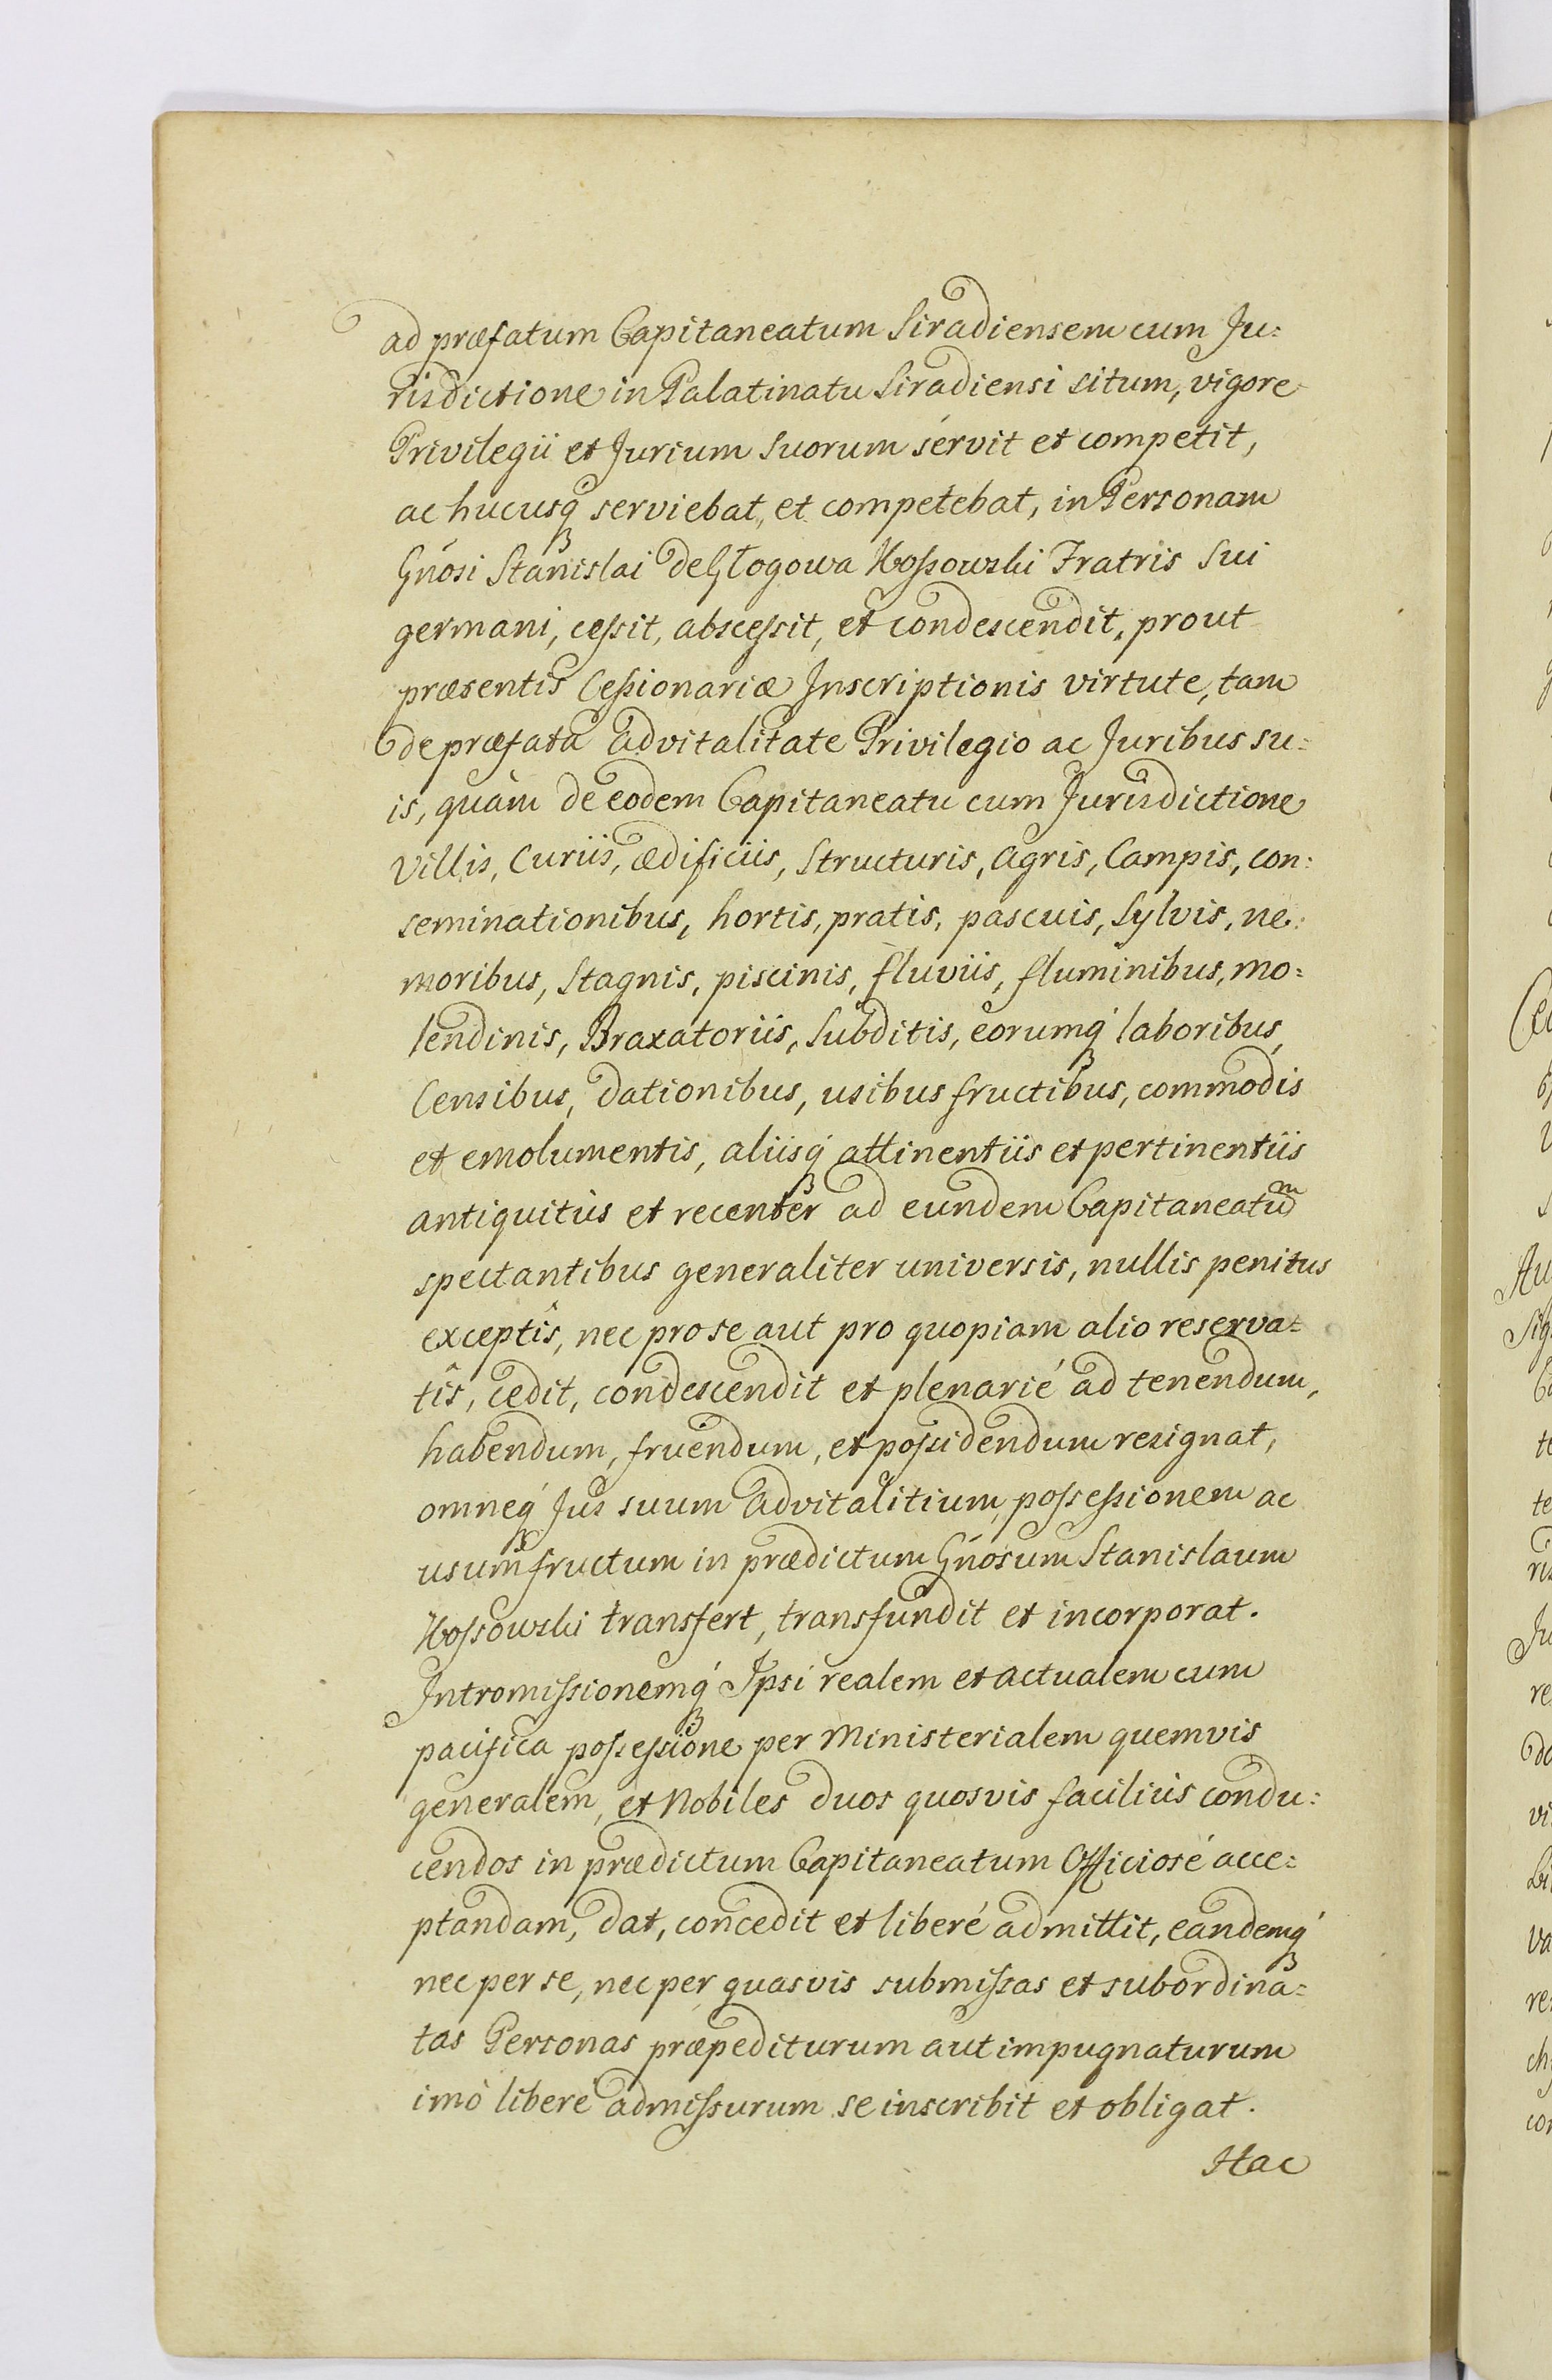 ad præfatum Capitaneatum Siradiensem cum Ju:
risdictione in Palatinatu Siradiensi situm, vigore
Privilegii et Jurium suorum servit et competit,
ac hucusq́ serviebat, et competebat, in Personam
Gńosi Stanislai de Głogowa Kossowski Fratris sui
germani, cessit, abscessit, et condescendit, prout
præsentis Cessionariæ Inscriptionis virtute, tam
de præfata Advitalitate Privilegio ac Juribus su:
is, quàm de eodem Capitaneatu cum Jurisdictione
Villis, Curiis, ædificiis, Structuris, Agris, Campis, con:
seminationibus, hortis, pratis, pascuis, Sylvis, ne:
moribus, Stagnis, piscinis, fluviis, fluminibus, mo:
lendinis, Braxatoriis, Subditis, eorumq́ laboribus,
Censibus, dationibus, usibus fructibus, commodis
et emolumentis, aliisq́ attinentiis et pertinentiis
antiquitùs et recenter ad eundem Capitaneatum
spectantibus generaliter universis, nullis penitus
exceptîs, nec pro se aut pro quopiam alio reserva:
tîs, cedit, condescendit et plenarié ad tenendum,
habendum, fruendum, et possidendum resignat,
omneq́ Jus suum Advitalitium, possessionem ac
usumfructum in prædictum Gńosum Stanislaum
Kossowski transfert, transfundit et incorporat.
Intromissionemq́ Ipsi realem et actualem cum
pacifica possessione per Ministerialem quemvis
generalem, et Nobiles duos quosvis faciliùs condu:
cendos in prædictum Capitaneatum Officiosé acce:
ptandam, dat, concedit et liberé admittit, eandemq́
nec per se, nec per quasvis submissas et subordina:
tas Personas præpediturum aut impugnaturum
imò liberé admissurum se inscribit et obligat.
Hac